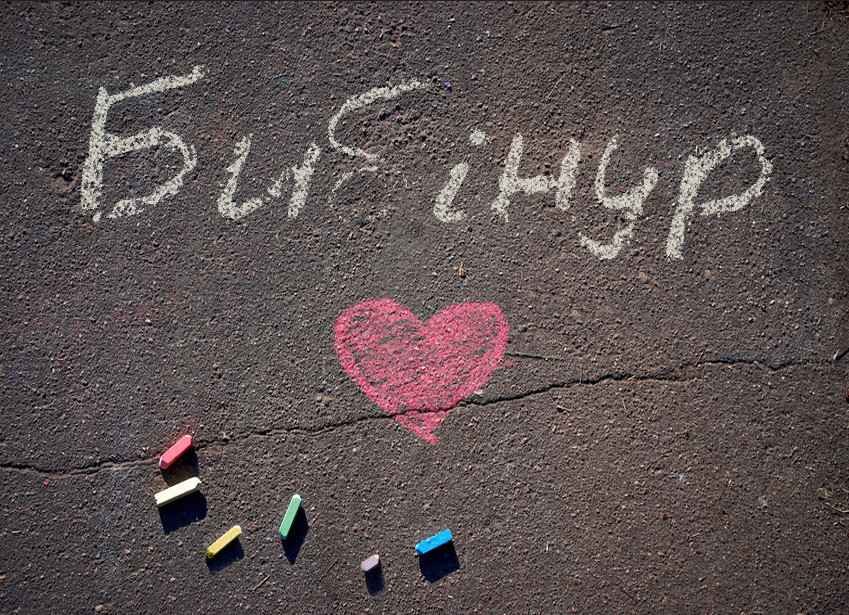 Бибінур